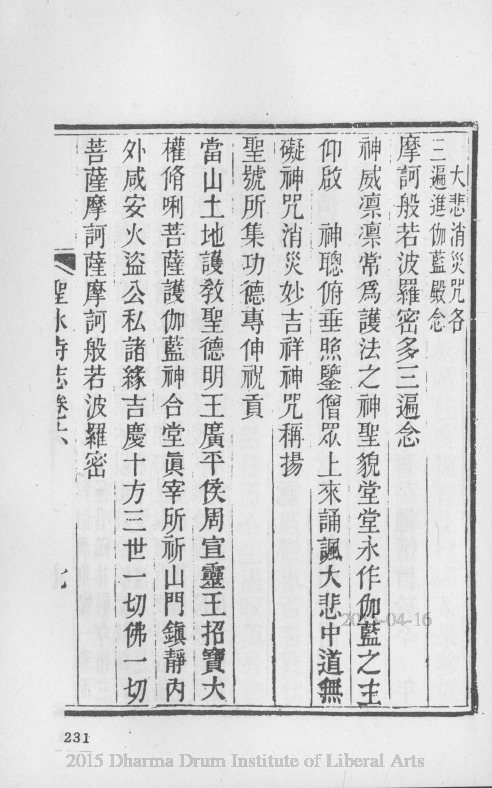 大悲消災咒各
三遍進伽藍殿念
摩訶般若波羅密多三遍念
神威凛凛常爲護法之神聖貌堂堂永作伽藍之主
仰啟　神聰俯垂照鑒僧眾上來誦諷大悲中道無
礙神咒消災妙吉祥神咒稱揚
聖號所集功德專伸祝貢
當山土地護教聖德明王廣平侯周宣靈王招寶大
權脩唎菩薩護伽藍神合堂眞宰所祈山門鎮靜內
外咸安火盜公私諸緣吉慶十方三世一切佛一切
菩薩摩訶薩摩訶般若波羅密
聖水寺志卷六
七
231
2015 Dharma Drum Institute of Liberal Arts
-04-16